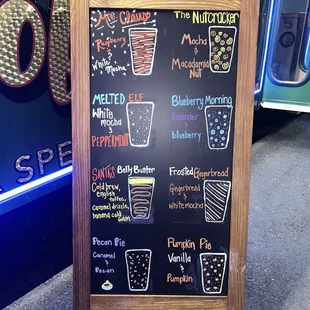 Mrs. Clause
Raspberry
&
White Mocha
The Nutcracker
Mocha
&
Macadamia
Nut
MELTED ELF
White
mocha
&
PEPPERMINT
Blueberry Morning
Lavender
&
blueberry
SANTA'S Belly Buster
Cold brew,
english
toffee,
caramel drizzle,
banana cold
foam
Frosted Gingerbread
Gingerbread
&
White mocha
Pecan Pie
Caramel
&
Pecan
Pumpkin Pie
Vanilla
&
Pumpkin
SPE